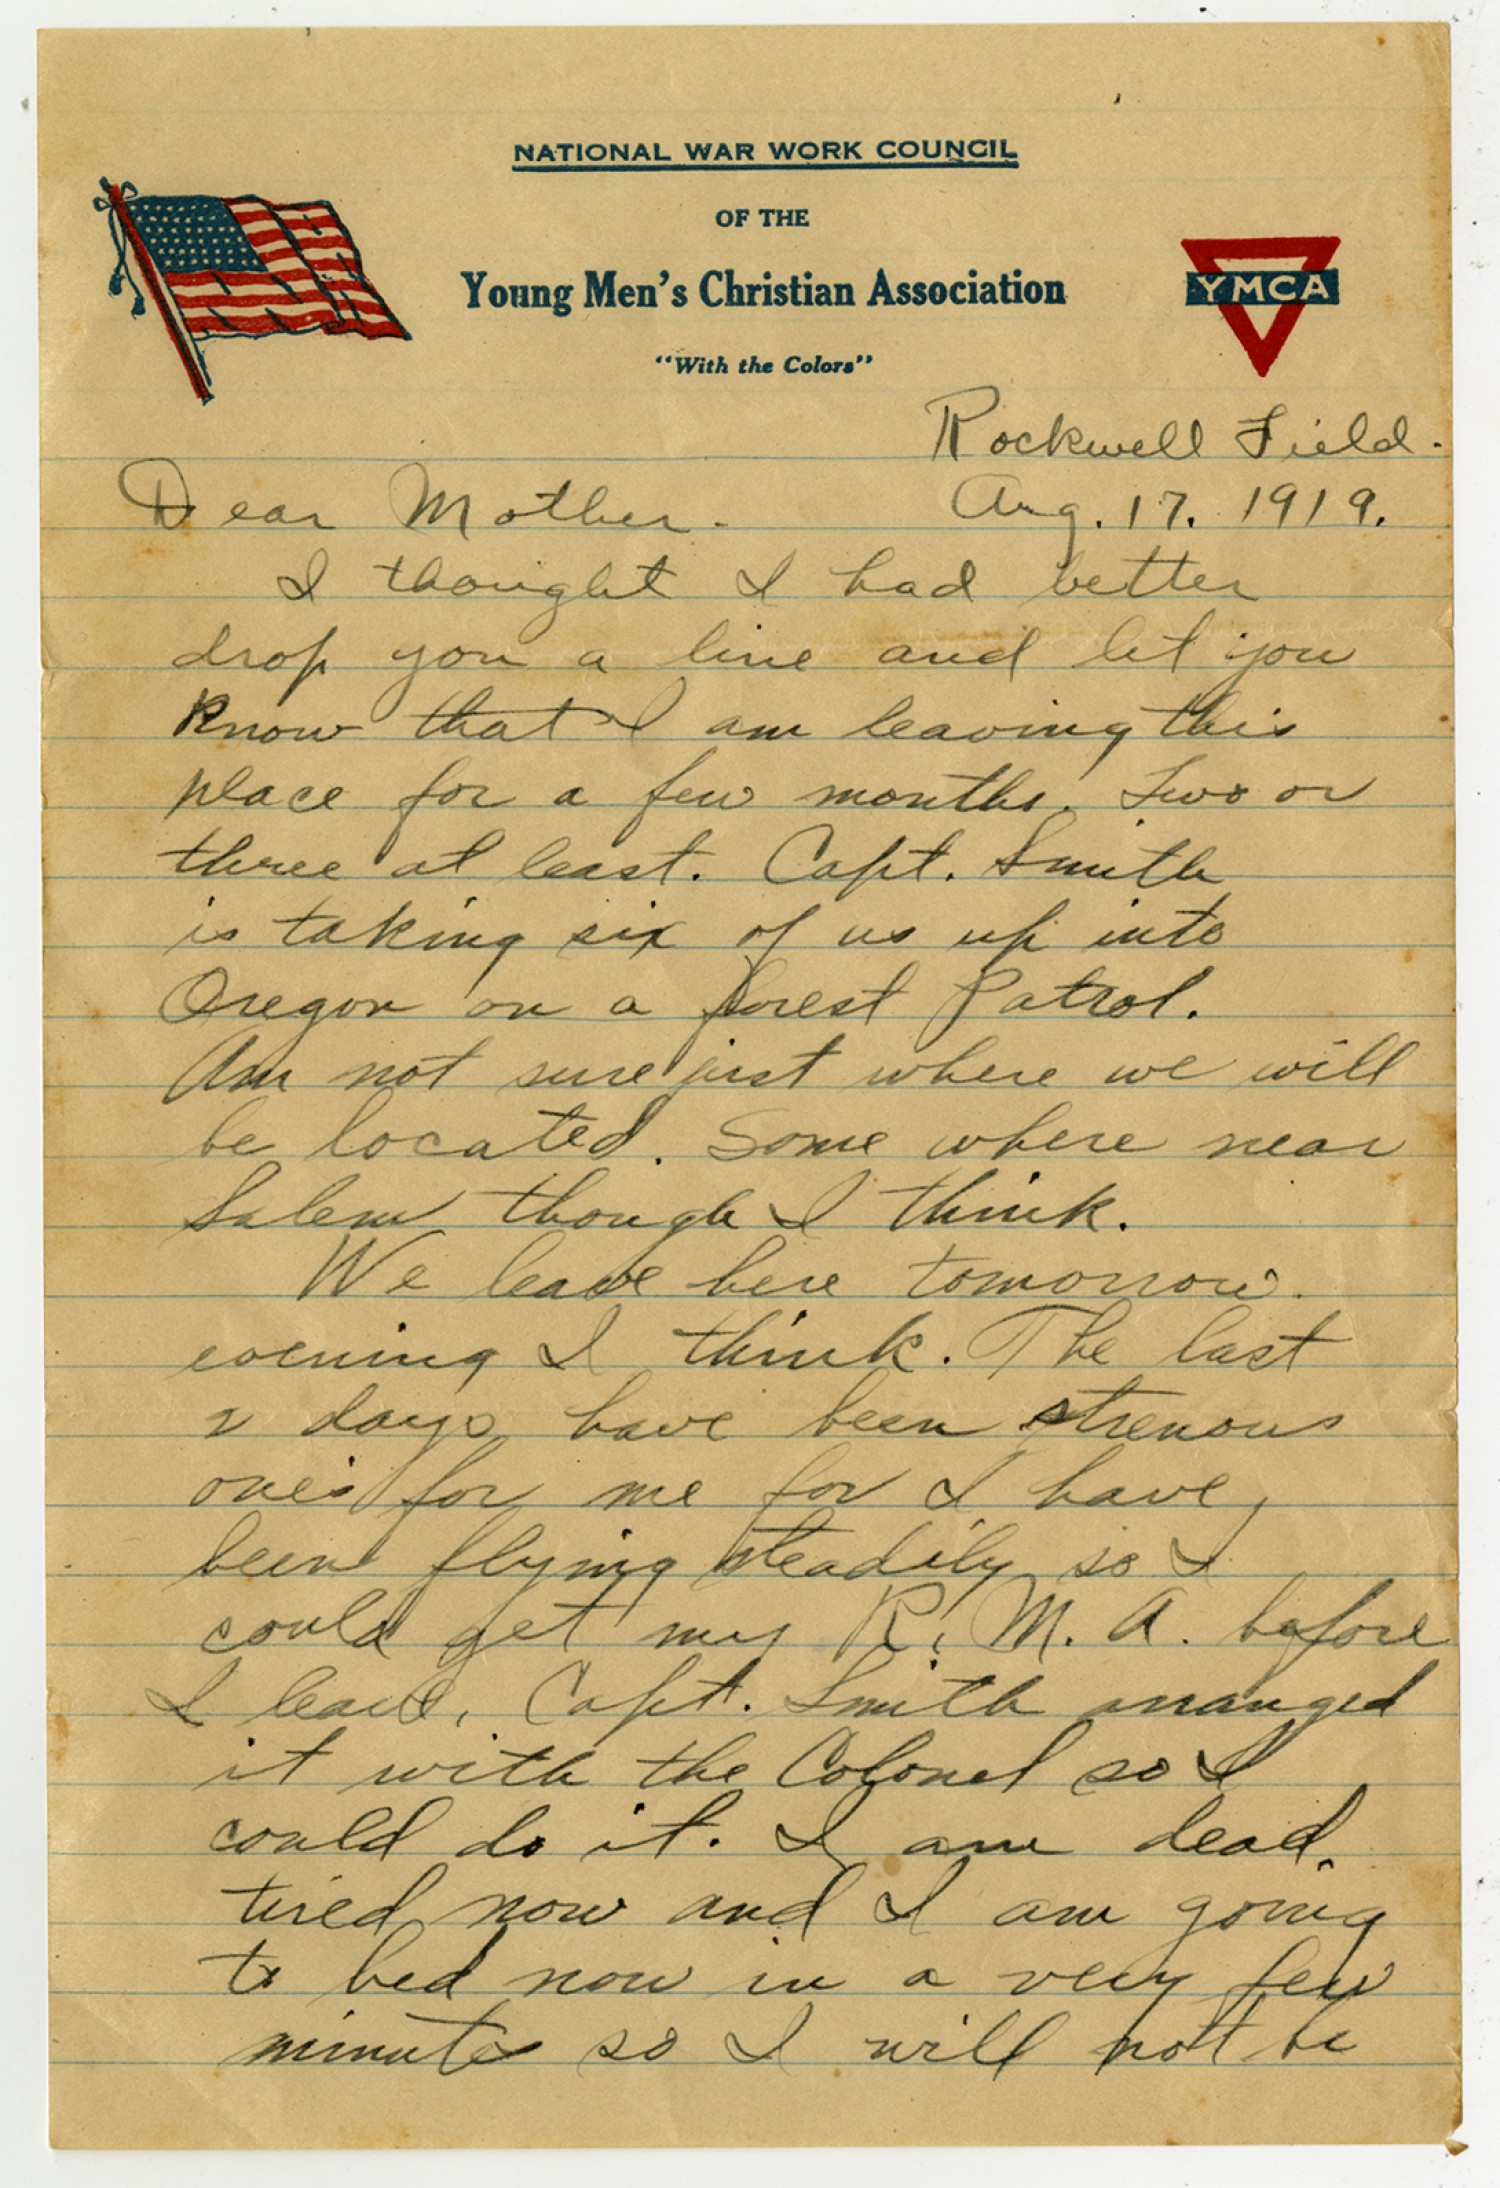 NATIONAL WAR WORK COUNCIL
OF THE
Young Men's Christian Association
"With the Colors"
YMCA
Rockwell Field.
Aug. 17. 1919.
Dear Mother.
I thought I had better
drop you a line and let you
know that I am leaving this
place for a few months. Two or
three at least. Capt. Smith
is taking six of us up into
Oregon on a forest Patrol.
Am not sure just where we will
be located. Some where near
Salem though I think.
We leave here tomorrow.
evening I think. The last
2 days have been strenous
ones for me for I have
been flying steadily so I
could get my R. M. A. before
I leave. Capt. Smith arranged
it with the Colonel so I
could do it. I am dead.
tired now and I am going
to bed now in a very few
minutes so I will not be